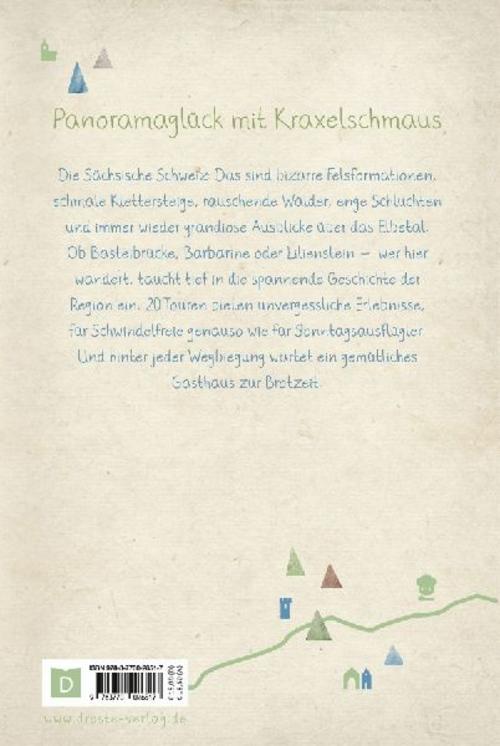 Panoramaglück mit Kraxelschmaus
Die Sächsische Schweiz: Das sind bizarre Felsformationen,
schmale Klettersteige, rauschende Wälder, enge Schluchten
und immer wieder grandiose Ausblicke über das Elbetal.
Ob Basteibrücke, Barbarine oder Lilienstein – wer hier
wandert, taucht tief in die spannende Geschichte der
Region ein. 20 Touren bieten unvergessliche Erlebnisse,
für Schwindelfreie genauso wie für Sonntagsausflügler.
Und hinter jeder Wegbiegung wartet ein gemütliches
Gasthaus zur Brotzeit.
D
www.droste-verlag.de